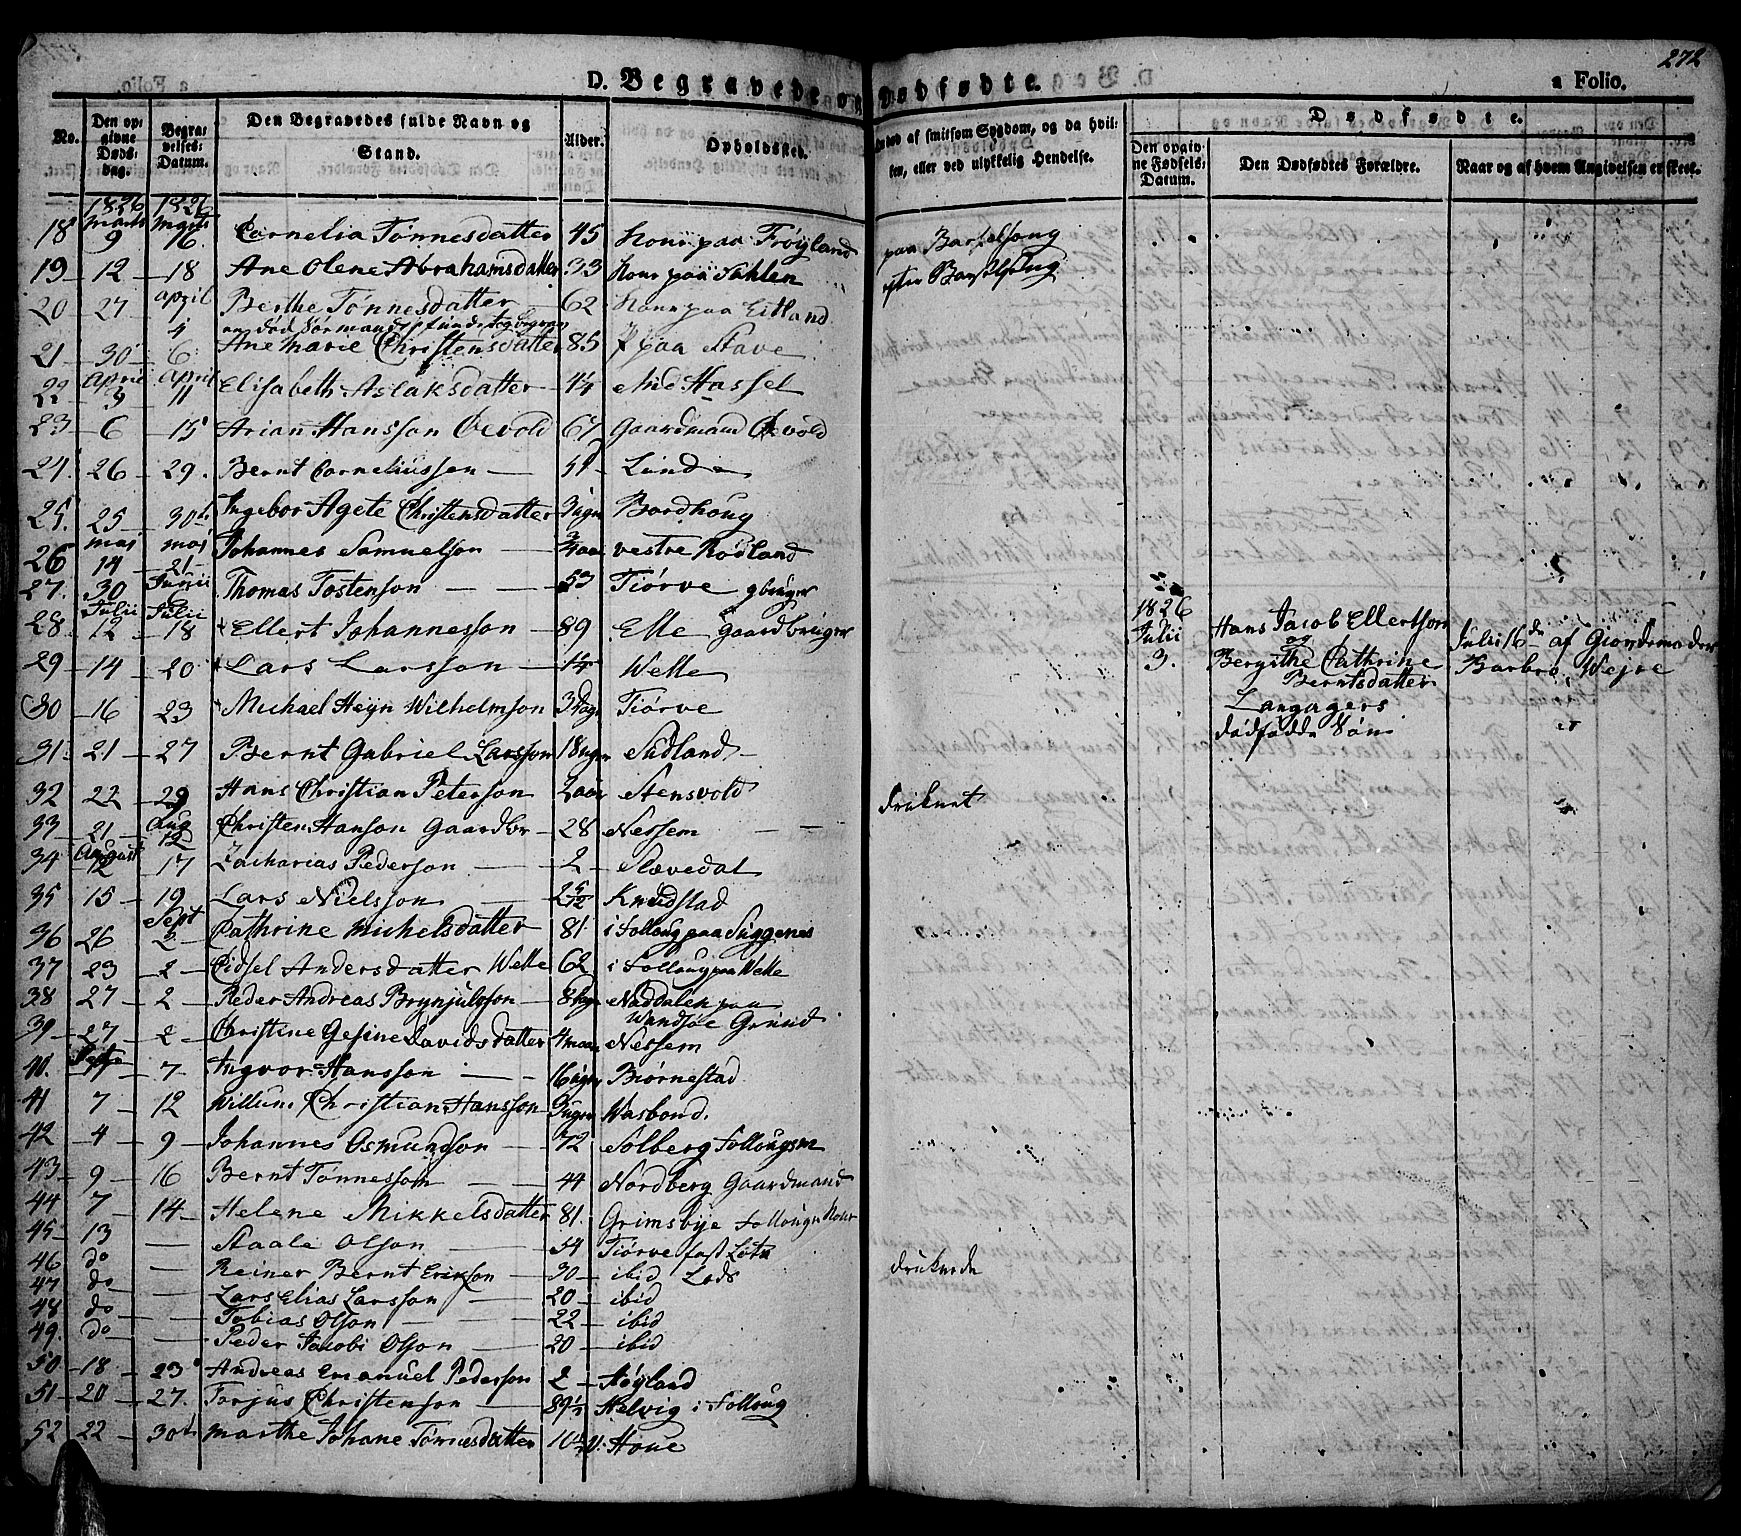 272
D. Begravede og Dødfødte.
a Folio.
No.
Den opgivne Dødsdag.
Begravelses: Datum.
Den Begravedes fulde Navn og Stand.
Alder.
Opholdssted.
Om død af smitsom Sygdom, og da hvilken, eller ved ulykkelig Hendelse.
Dødfødte.
Den opgivne Fødsels: Datum.
Den Dødfødtes Forældre.
Naar og af hvem Angivelsen er skeet.
1826 1826
18 Marts 9 Marts 16 Cornelia Tønnesdatter 45 Kone paa Frøyland paa Barselseng
19 12 18 Ane Olene Abrahamsdatter 33 Kone paa Sahlen efter Barselseng
20 27 April Berthe Tønnesdatter 62 Kone paa Eitland
4 en død Sørmand funden og begravet
21 30 6 Ane Marie Christensdatter 85 paa Stave
22 April 3 April 11 Elisabeth Aslaksdatter Hassel
23 6 15 Arian Hansson Øevold 67 Gaardmand Øevold
24 26 29 Bernt Corneliusson Lunde
25 25 30 Ingebor Agete Christensdatter 3 uger Bordhoug
26 Maj 14 Maj 21 Johannes Samuelson 3/4 aar vestre Rødland
27 30 Junii 6 Thomas Tostenson 53 Tiørve gbruger
28 Julii 12 Julii 18 Ellert Johannesson 89 Elle Gaardbruger
1826 Julii 3. Hans Jacob Ellertson og Bergithe Cathrine Berntsdatter Langagers dødfødde Søn Julii 16de af Giordemoder Barbro Vejre
29 14 20 Lars Larsson Welle
30 16 23 Michael Heyn Wilhelmson 3 Dage Tiørve
31 21 27 Bernt Gabriel Larsson 18 uger Sædland
32 22 29 Hans Christian Peterson 2 aar Stensvold druknet
33 21 Aug 12 Christen Hanson Gaardbr 28 Nessem
34 August 12 17 Zacharias Pederson 2 Slævedal
35 15 19 Lars Nielsson 2 5/12 Knudstad
36 26 Sept 2 Cathrine Michelsdatter 81 i Folloug paa Siggenes
37 23 2 Sidsel Andersdatter Welle 62 i Follougpaa Welle
38 27 2 Peder Andreas Brynjulsson Naddalen paa Wandsøe Grund
39 27 2 Christine Gesine Davidsdatter 4 maan Nessem
40 Septr 1 7 Ingvor Hansson 16 uger Biørnestad
41 7 12 Willum Christian Hansson 3 uger Wasbond.
42 4 9 Johannes Osmundson 72 Solberg Follougsm
43 9 16 Bernt Tønnesson 44 Nordberg Gaardmand
44 7 14 Helene Mikkelsdatter 81 Grimsbye Follougs Kone
45 13 Staale Olson 54 Tiørve fast Lots
46 do Reiner Bernt Erikson 30 ibid Lods drukнede
47 do Lars Elias Larsson 20 ibid
48 do Tobias Olson 22 ibid
49 do Peder Jacobi Olson 20 ibid
50 18 23 Andreas Emanuel Pederson 2 Høyland
51 20 27 Torjus Christenson 89½ Helvig i Folloug
52 22 30 Marthe Johane Tønnesdatter Houe